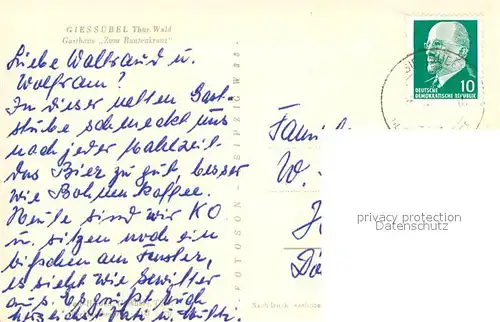 GIESSÜBEL Thür. Wald
Gasthaus „Zum Rautenkranz"
Liebe Waltraud u.
Wolfram!
In dieser netten Gast-
stube schmeckt uns
nach jeder Mahlzeit
das Bier zu gut, besser
wie Bohnenkaffee.
Heute sind wir KO
u. sitzen noch ein
bißchen am Fenster,
es sieht wie Gewitter
aus. Es grüßt Euch
herzlichst
FOTOSON - LEIPZIG W 32
10
DEUTSCHE
DEMOKRATISCHE REPUBLIK
Famil
W.
privacy protection
Datenschutz